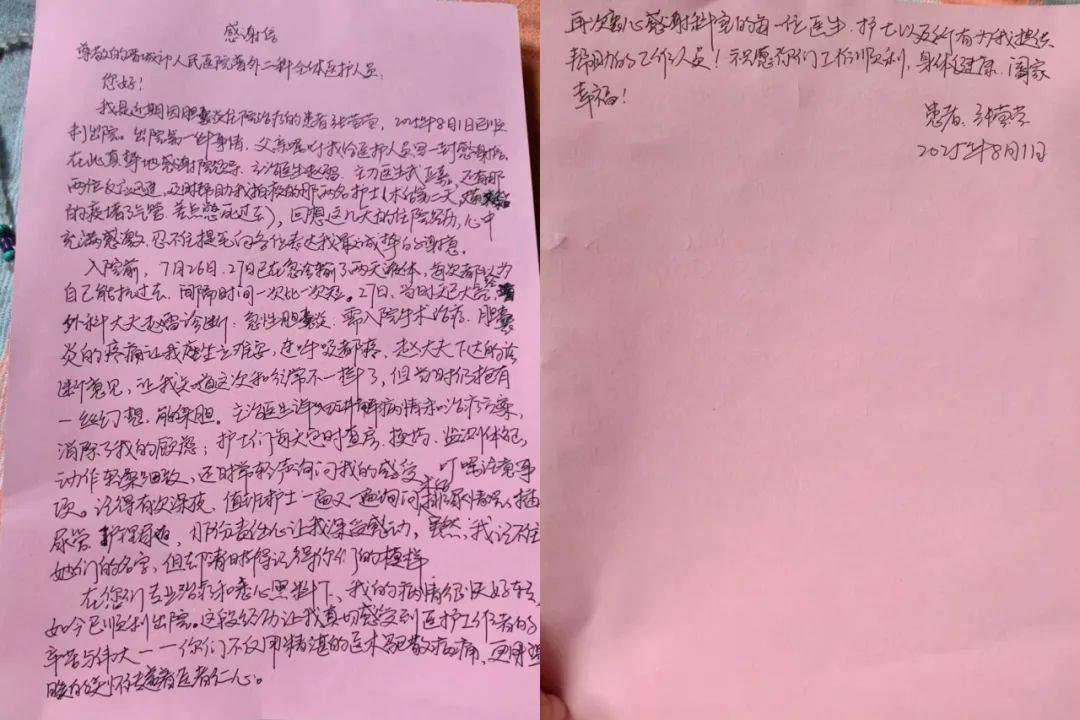 感谢信
尊敬的晋城市人民医院普外二科全体医护人员:
您好!
我是近期因胆囊炎住院治疗的患者张营营,2025年8月1日已顺
利出院。出院第一件事情,父亲嘱咐我给医护人员写一封感谢信,
在此真挚地感谢院领导、主治医生赵雷、主刀医生武,还有那
两位反应迅速,及时帮助我拍痰的那两名护士(术后第二天,
的痰堵了气管,差点憋死过去),回想这几天的住院经历,心中
充满感激,忍不住提笔向各位表达我最诚挚的谢意。
入院前,7月26日、27日已在急诊输了两天液体,每次都以为
自己能抗过去,间隔时间一次比一次短。27日,当时天已大
外科大夫赵雷诊断:急性胆囊炎,需入院手术治疗,胆囊
炎的疼痛让我座立难安,连呼吸都疼,赵大夫下达的诊
断意见,让我知道这次和往常不一样了,但当时仍抱有
一丝幻想,能保胆。主治医生详细讲解病情和治疗方案,
消除了我的顾虑;护士们每天定时查房、换药、监测体征,
动作轻柔细致,还时常轻声询问我的感受,叮嘱注意事
项。记得有次深夜,值班护士一遍又一遍询问排尿情况,插
尿管护理,那份责任心让我深受感动,虽然,我记不住
她们的名字,但却清晰得记得你们的模样
在您们专业治疗和悉心照料下,我的病情很快好转,
如今已顺利出院。这段经历让我真切感受到医护工作者的
辛苦与伟大——你们不仅用精湛的医术驱散病痛,更用温
暖的关怀传递着医者仁心。
再次衷心感谢科室的每一位医生、护士以及所有为我提供
帮助的工作人员!祝愿你们工作顺利,身体健康,阖家
幸福!
患者:张营营
2025年8月1日